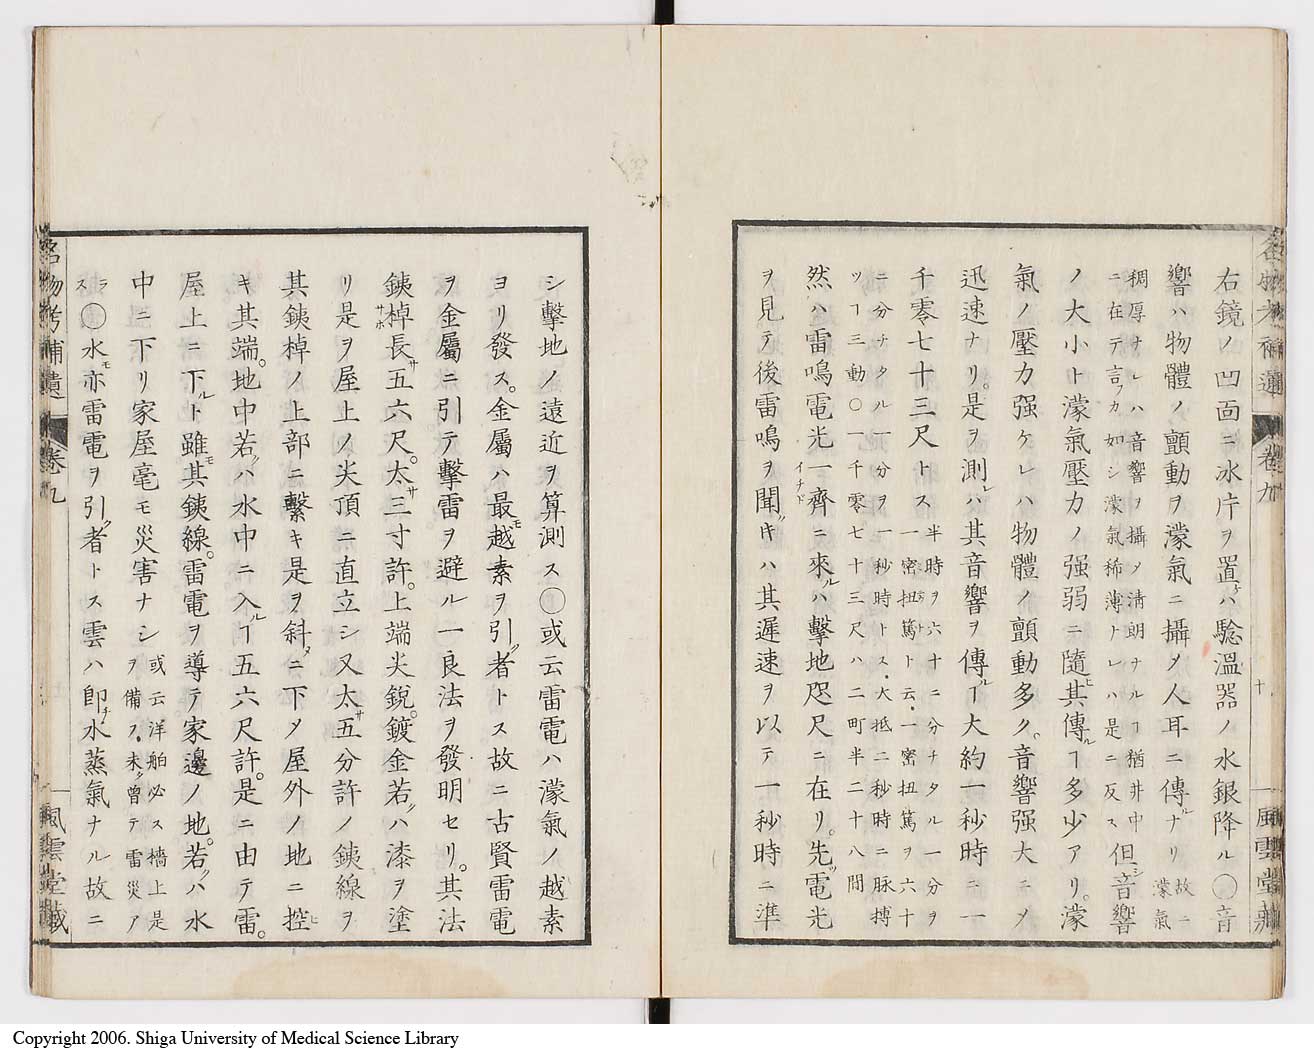 名物考補遺 卷九 十 風雲堂藏
右鏡ノ凹面ニ冰片ヲ置ケハ驗溫器ノ水銀降ル〇音
響ハ物體ノ顫動ヲ濛氣ニ攝メ人耳ニ傳ルナリ故ニ濛氣
稠厚ナレハ音響ヲ攝メ清朗ナルヿ猶井中ニ在テ言フカ如シ濛氣稀薄ナレハ是ニ反ス但シ音響
ノ大小ト濛氣壓力ノ强弱ニ隨ヒ其傳ルヿ多少アリ。濛
氣ノ壓力强ケレハ物體ノ顫動多ク。音響强大ニメ
迅速ナリ。是ヲ測レハ其音響ヲ傳ルヿ大約一秒時ニ一
千零七十三尺トス半時ヲ六十ニ分チタル一分ヲ一密扭篤ト云・一密扭篤ヲ六十
ニ分ナタル一分ヲ一秒時トス・大抵二秒時ニ脉搏ツヿ三動〇一千零七十三尺ハ二町半二十八間
然ハ雷鳴電光一齊イチドニ來ルハ擊地咫尺ニ在リ。先ツ電光
ヲ見テ後雷鳴ヲ聞ギハ其遲速ヲ以テ一秒時ニ準
シ擊地ノ遠近ヲ算測ス〇或云雷電ハ濛氣ノ越素
ヨリ發ス。金屬ハ最モ越素ヲ引ク者トス故ニ古賢雷電
ヲ金屬ニ引テ擊雷ヲ避ル一良法ヲ發明セリ。其法
銕棹サホ長サ五六尺。太サ三寸許。上端尖銳。鍍金若クハ漆ヲ塗
リ是ヲ屋上ノ尖頂ニ直立シ又太サ五分許ノ銕線ヲ
其銕棹ノ上部ニ繫キ是ヲ斜メニ下メ屋外ノ地ニ控ヒ
キ其端。地中若クハ水中ニ入ルヿ五六尺許。是ニ由テ雷。
屋上ニ下ルト雖モ其銕線。雷電ヲ導テ家邊ノ地。若クハ水
中ニ下リ家屋毫モ災害ナシ或云洋舶必ス檣上是ヲ備フ・未タ曾テ雷災ア
ラス〇水モ亦雷電ヲ引ク者トス雲ハ卽チ水蒸氣ナル故ニ
名物考補遺 卷九 風雲堂藏
Copyright 2006. Shiga University of Medical Science Library